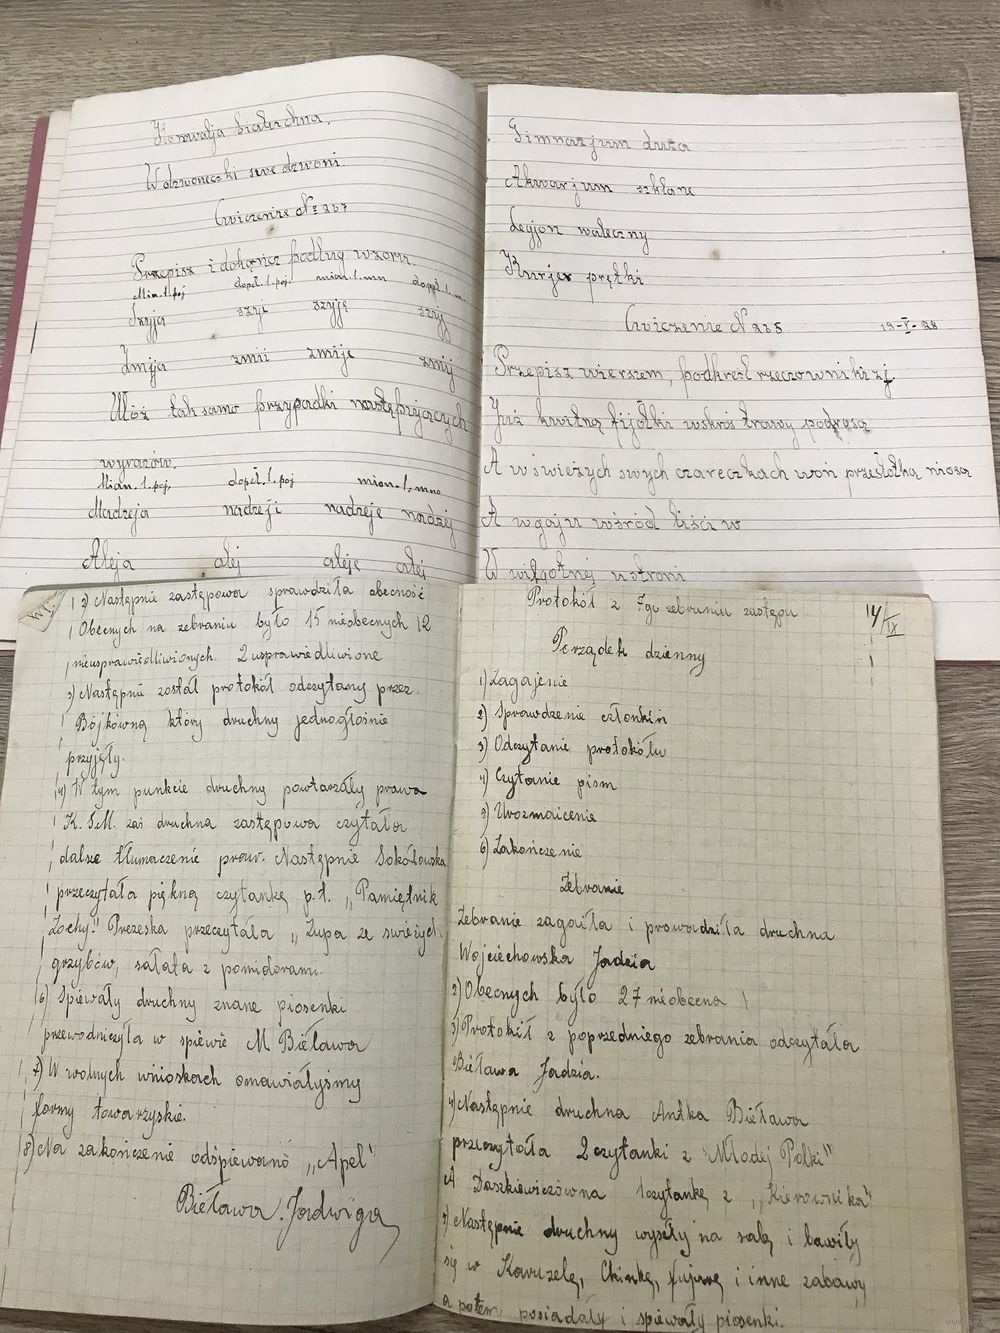 Konwalja bieluchna,
W dzwoneczki swe dzwoni.
Ćwiczenie № 207
Przepisz i dokończ podług wzoru
Mian. l. poj dopeł. l. poj. mian. l. mn dopeł. l. m.
Szyja szyi szyje szyj
Żmija żmii żmije żmij
Ułóż tak samo przypadki następujących
wyrazów.
Mian. l. poj. dopeł. l. poj mian. l. mno
Nadzeja nadzeji nadzeje nadzej
Aleja alej aleje alei
Gimnazjum duża
Akwarjum szklane
Legjon waleczny
Kurjer prętki
Ćwiczenie № 205 19-V-28
Przepisz wierszem, podkreśl rzeczowniki z j.
Już kwitną fijołki wskroś trawy podrosą
A w świeżych swych czareczkach woń przesłotką niosą
A w gaju wśród liści w
W wilgotnej ustroni
2) Następnie zastępowa sprawdziła obecność
Obecnych na zebraniu było 15 nieobecnych 12
nieusprawiedliwionych 2 usprawiedliwione
3) Następnie został protokół odczytany przez
Bójkówną który druchny jednogłośnie
przyjęły.
4) W tym punkcie druchny powtarzały prawa
K.S.M. zaś druchna zastępowa czytała
dalsze tłumaczenie praw. Następnie Sokołowska
przeczytała piękną czytankę p.t. "Pamiętnik
Zochy." Prezeska przeczytała "Zupa ze świeżych
grzybów, sałata z pomidorami.
6) Śpiewały druchny znane piosenki
przewodniczyła w śpiewie M Bieława
7) W wolnych wnioskach omawiałyśmy
formy towarzyskie.
8) Na zakończenie odśpiewano "Apel"
Bieława Jadwiga
Protokół z 7go zebraniu zastępu 14/IX
Porządek dzienny
1) Zagajenie
2) Sprawdzenie członkiń
3) Odczytanie protokółu
4) Czytanie pism
5) Urozmaicenie
6) Zakończenie
Zebranie
Zebranie zagaiła i prowadziła druchna
Wojciechowska Jadzia
2) Obecnych było 27 nieobecna 1
3) Protokół z poprzedniego zebrania odczytała
Bieława Jadzia.
4) Następnie druchna Antka Bieława
przeczytała 2 czytanki z "Młodej Polki"
A Daszkiewiczówna 1 czytankę z "Kierownika"
5) Następnie druchny wyszły na salę i bawiły
się w Karuzelę, Chinkę, fujarę i inne zabawy
a potem posiadały i śpiewały piosenki.